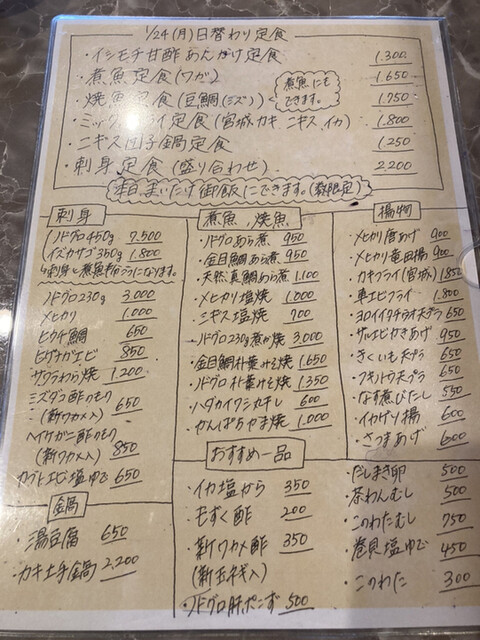 1/24(月)日替わり定食
・イシモチ甘酢あんかけ定食 1.300
・煮魚定食(ワガ) 1.650
・焼魚定食(豆鯛(ミズ)) 1.750
煮魚にも
できます。
・ミックスフライ定食(宮城カキ、ニギス、イカ) 1.800
・ニギス団子鍋定食 1.250
・刺身定食(盛り合わせ) 2.200
まいたけ御飯にできます。(数限定)
刺身
ノドグロ450g 7.500
(イズカサゴ350g 1.800
↳刺身と煮魚半分ずつになります。
ノドグロ230g 3.000
メヒカリ 1.000
ヒウチ鯛 650
ヒゲナガエビ 850
サワラわら焼 1.200
ミズダコ酢のもの
(新ワカメ入) 650
ヘイケガニ酢のもの
(新ワカメ入) 850
カブトエビ塩ゆで 650
鍋
・湯豆腐 650
・カキ土手鍋 2.200
煮魚、焼魚
・ノドグロあら煮 950
・金目鯛あら煮 950
・天然真鯛あら煮 1.100
・メヒカリ塩焼 1.000
・ニギス塩焼 700
・ノドグロ230g煮か焼 3.000
・金目鯛朴葉みそ焼 1.650
・ノドグロ朴葉みそ焼 1.350
・ハダカイワシ丸干し 600
・かんぱちかま焼 1.000
揚物
・メヒカリ唐あげ 900
・メヒカリ竜田揚 900
・カキフライ(宮城) 1.850
・車エビフライ 1.800
・ヨロイイタチウオ天ぷら 650
・サルエビかきあげ 950
・きくいも天ぷら 650
・フキノトウ天プラ 650
・なす煮びたし 550
・イカゲソ揚 600
・さつまあげ 600
おすすめ一品
・イカ塩から 350
・もずく酢 200
・新ワカメ酢 350
(新玉ネギ入)
・ノドグロ肝ポン酢 500
・だしまき卵 500
・茶わんむし 500
・このわたむし 750
・巻貝塩ゆで 450
・このわた 300